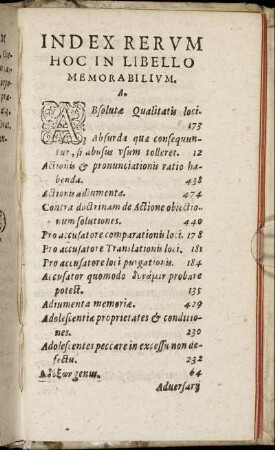 INDEX RERVM
HOC IN LIBELLO
MEMORABILIVM.
A.
ABsolutæ Qualitatis loci.
173
Absurda quæ consequun-
tur, si abusus vsum tolleret. 12
Actionis & pronunciationis ratio ha-
benda. 438
Actionis adiumenta. 474
Contra doctrinam de Actione obiectio-
num solutiones. 440
Pro accusatore comparationis loci. 178
Pro accusatore Translationis loci. 181
Pro accusatore loci purgationis. 184
Accusator quomodo δυνάμιν probare
potest. 135
Adiumenta memoriæ. 429
Adolescentiæ proprietates & conditio-
nes. 230
Adolescentes peccare in excessu non de-
fectu. 232
genus. 64
Aduersarij